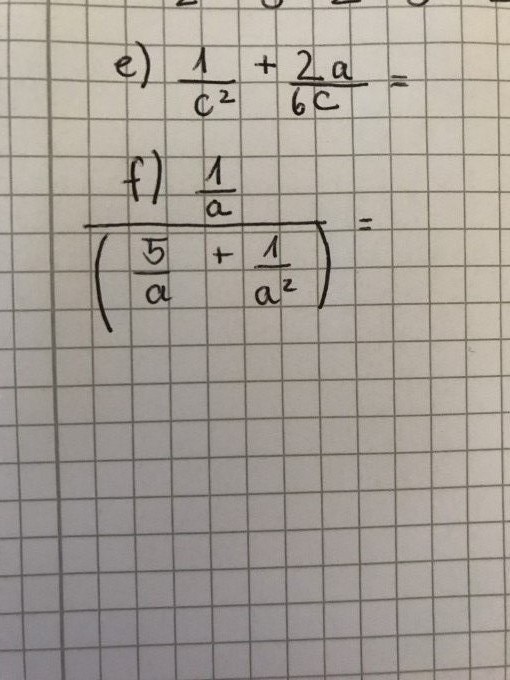 e) 1/c² + 2a/6c =
f) 1/a
(5/a + 1/a²) =